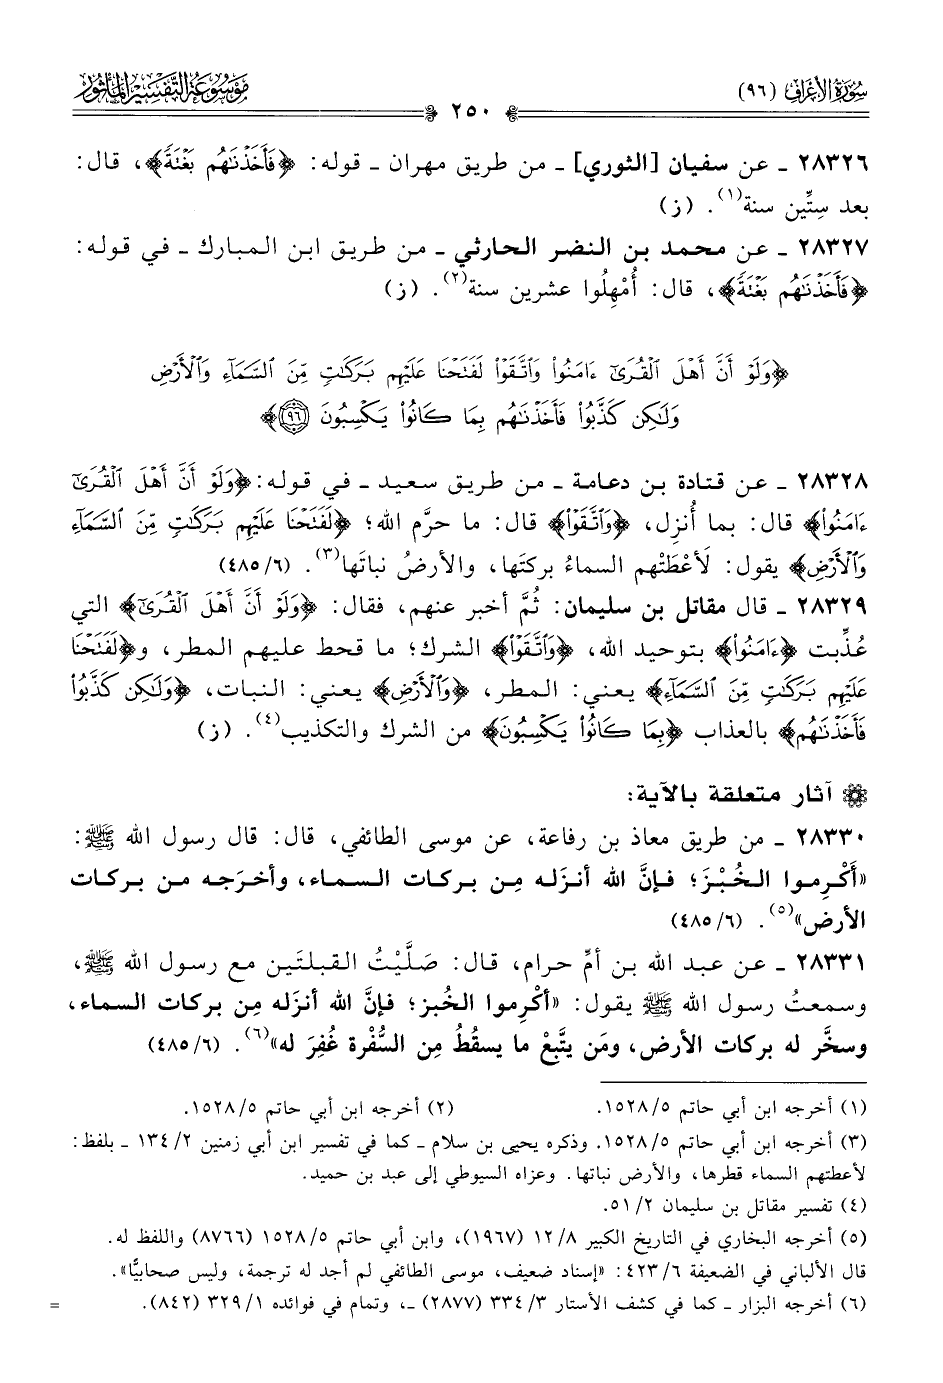 سُورَةُ الأَعْرَافِ (٩٦)
٢٥٠
مَوْسُوعَةُ التَّفْسِيرِ المَأْثُور
٢٨٣٢٦ ـ عن سفيان [الثوري] ـ من طريق مهران ـ قوله: ﴿فَأَخَذْنَٰهُم بَغْتَةً﴾، قال:
بعد سِتِّين سنة(١). (ز)
٢٨٣٢٧ ـ عن محمد بن النضر الحارثي ـ من طريق ابن المبارك ـ في قوله:
﴿فَأَخَذْنَٰهُم بَغْتَةً﴾، قال: أُمْهِلُوا عشرين سنة(٢). (ز)
﴿وَلَوْ أَنَّ أَهْلَ ٱلْقُرَىٰٓ ءَامَنُوا۟ وَٱتَّقَوْا۟ لَفَتَحْنَا عَلَيْهِم بَرَكَٰتٍ مِّنَ ٱلسَّمَآءِ وَٱلْأَرْضِ
وَلَٰكِن كَذَّبُوا۟ فَأَخَذْنَٰهُم بِمَا كَانُوا۟ يَكْسِبُونَ ٩٦﴾
٢٨٣٢٨ ـ عن قتادة بن دعامة ـ من طريق سعيد ـ في قوله: ﴿وَلَوْ أَنَّ أَهْلَ ٱلْقُرَىٰٓ
ءَامَنُوا۟﴾ قال: بما أُنزِل، ﴿وَٱتَّقَوْا۟﴾ قال: ما حرَّم الله؛ ﴿لَفَتَحْنَا عَلَيْهِم بَرَكَٰتٍ مِّنَ ٱلسَّمَآءِ
وَٱلْأَرْضِ﴾ يقول: لَأعْطَتْهم السماءُ بركتَها، والأرضُ نباتَها(٣). (٦/ ٤٨٥)
٢٨٣٢٩ ـ قال مقاتل بن سليمان: ثُمَّ أخبر عنهم، فقال: ﴿وَلَوْ أَنَّ أَهْلَ ٱلْقُرَىٰٓ﴾ التي
عُذِّبت ﴿ءَامَنُوا۟﴾ بتوحيد الله، ﴿وَٱتَّقَوْا۟﴾ الشرك؛ ما قحط عليهم المطر، و﴿لَفَتَحْنَا
عَلَيْهِم بَرَكَٰتٍ مِّنَ ٱلسَّمَآءِ﴾ يعني: المطر، ﴿وَٱلْأَرْضِ﴾ يعني: النبات، ﴿وَلَٰكِن كَذَّبُوا۟
فَأَخَذْنَٰهُم﴾ بالعذاب ﴿بِمَا كَانُوا۟ يَكْسِبُونَ﴾ من الشرك والتكذيب(٤). (ز)
آثار متعلقة بالآية:
٢٨٣٣٠ ـ من طريق معاذ بن رفاعة، عن موسى الطائفي، قال: قال رسول الله ﷺ:
«أَكْرِموا الخُبْزَ؛ فإنَّ الله أنزَله مِن بركات السماء، وأخرَجه من بركات
الأرض»(٥). (٦/ ٤٨٥)
٢٨٣٣١ ـ عن عبد الله بن أمِّ حرام، قال: صَلَّيْتُ القبلتَين مع رسول الله ﷺ،
وسمعتُ رسول الله ﷺ يقول: «أكْرِموا الخُبز؛ فإنَّ الله أنزَله مِن بركات السماء،
وسخَّر له بركات الأرض، ومَن يتَّبِعْ ما يسقُطُ مِن السُّفْرة غُفِرَ له»(٦). (٦/ ٤٨٥)
(١) أخرجه ابن أبي حاتم ٥/ ١٥٢٨. (٢) أخرجه ابن أبي حاتم ٥/ ١٥٢٨.
(٣) أخرجه ابن أبي حاتم ٥/ ١٥٢٨. وذكره يحيى بن سلام ـ كما في تفسير ابن أبي زمنين ٢/ ١٣٤ ـ بلفظ:
لأعطتهم السماء قطرها، والأرض نباتها. وعزاه السيوطي إلى عبد بن حميد.
(٤) تفسير مقاتل بن سليمان ٢/ ٥١.
(٥) أخرجه البخاري في التاريخ الكبير ٨/ ١٢ (١٩٦٧)، وابن أبي حاتم ٥/ ١٥٢٨ (٨٧٦٦) واللفظ له.
قال الألباني في الضعيفة ٦/ ٤٢٣: «إسناد ضعيف، موسى الطائفي لم أجد له ترجمة، وليس صحابيًّا».
(٦) أخرجه البزار ـ كما في كشف الأستار ٣/ ٣٣٤ (٢٨٧٧) ـ، وتمام في فوائده ١/ ٣٢٩ (٨٤٢). =